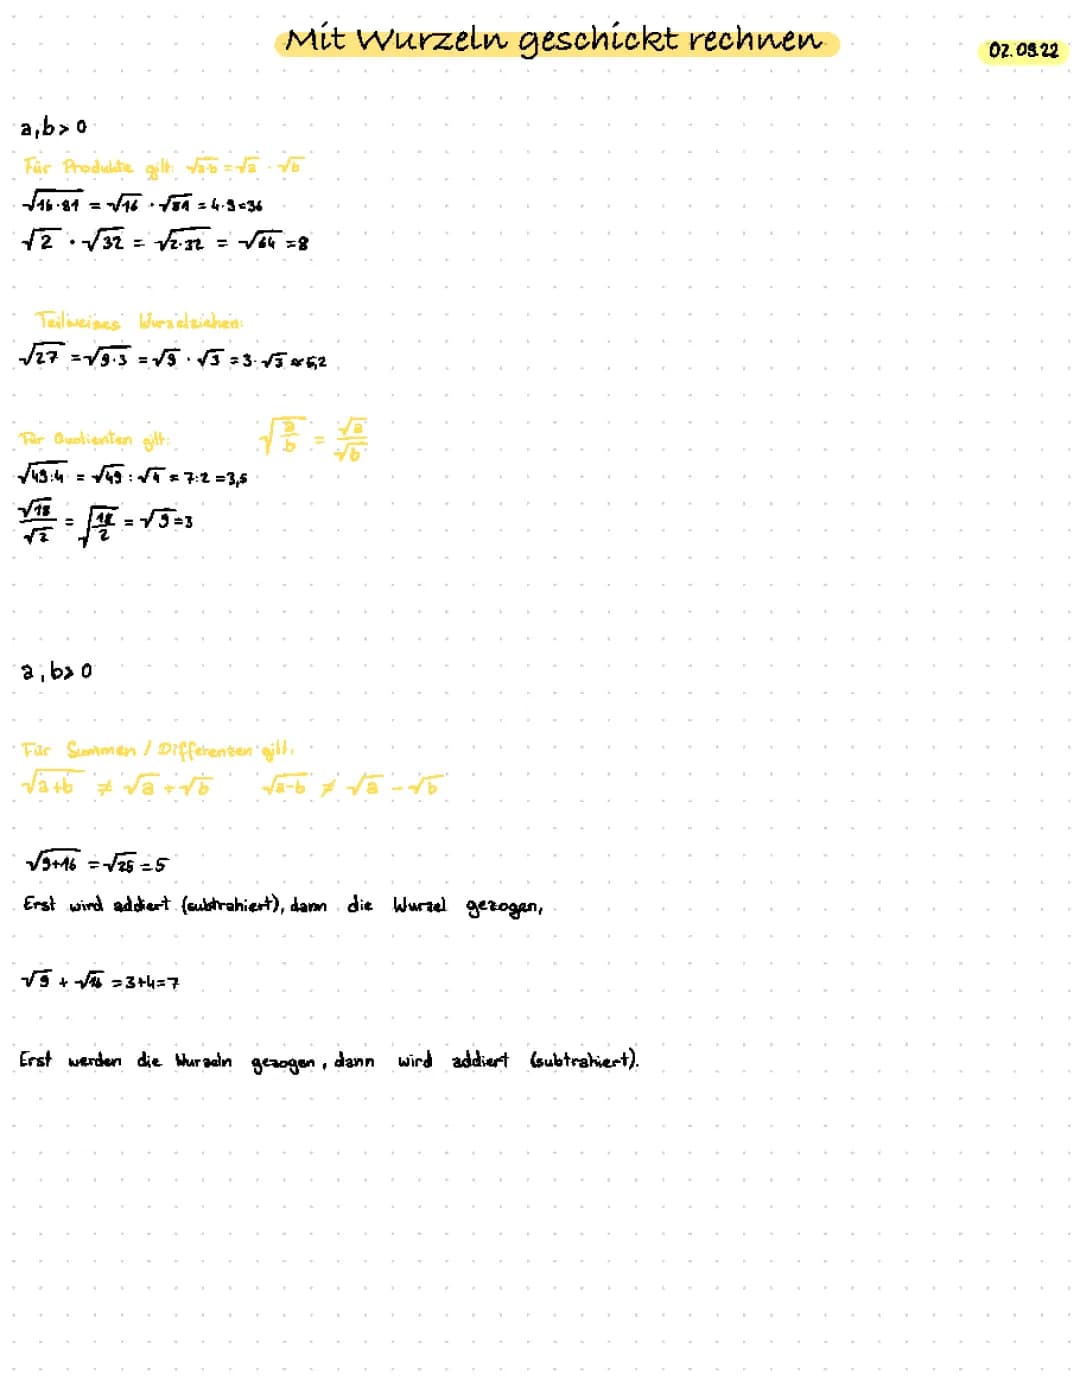 Mit Wurzeln geschickt rechnen
02.09.22
a,b > 0
Für Produkte gilt: √a·b = √a · √b
√16·81 = √16 · √81 = 4·9=36
√2 · √32 = √2·32 = √64 = 8
Teilweises Wurzelziehen:
√27 = √9·3 = √9 · √3 = 3·√3 ≈ 5,2
Für Quotienten gilt: √a/b = √a/√b
√49:4 = √49 : √4 = 7:2 = 3,5
√18/√2 = √18/2 = √9 = 3
a, b > 0
Für Summen / Differenzen gilt:
√a+b ≠ √a + √b √a-b ≠ √a - √b
√9+16 = √25 = 5
Erst wird addiert (subtrahiert), dann die Wurzel gezogen,
√9 + √16 = 3+4=7
Erst werden die Wurzeln gezogen, dann wird addiert (subtrahiert).